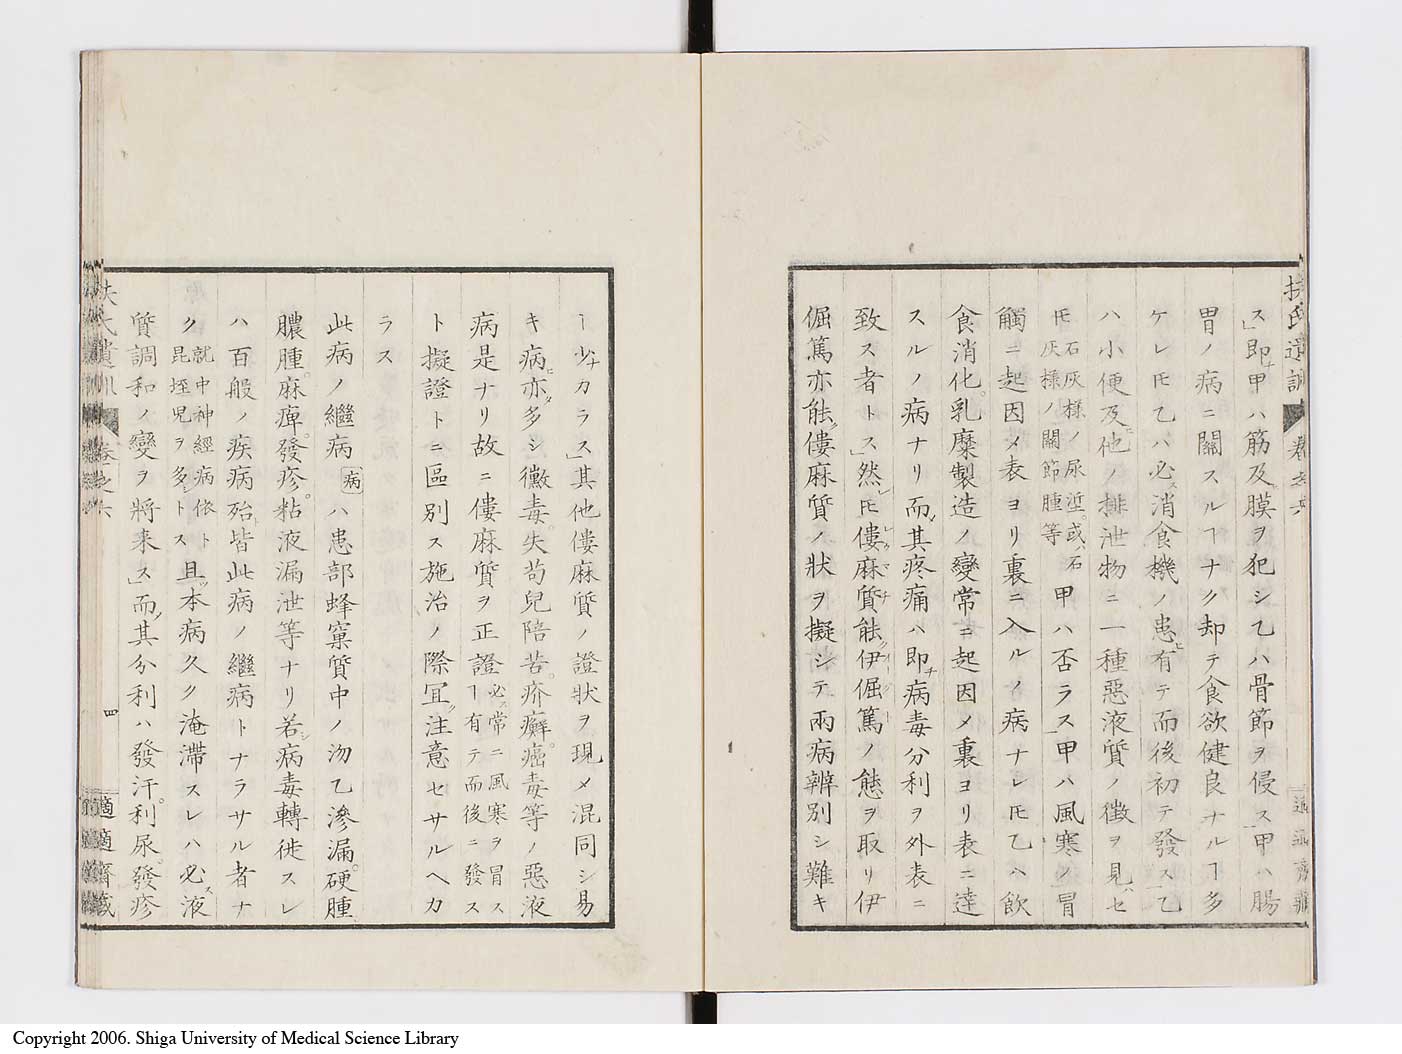 ス」即チ甲ハ筋及膜ヲ犯シ乙ハ骨節ヲ侵ス甲ハ腸
胃ノ病ニ關スルヿナク却テ食欲健良ナルヿ多
ケレ𪜈乙ハ必ス消食機ノ患ヒ有テ而後初テ發ス」乙
ハ小便及ヒ他ノ排泄物ニ一種惡液質ノ徴ヲ見ハセ
𪜈石灰樣ノ尿垽或ハ石灰樣ノ關節腫等甲ハ否ラス」甲ハ風寒ノ冒
觸ニ起因メ表ヨリ裏ニ入ルノ病ナレ𪜈乙ハ飲
食消化乳糜製造ノ變常ニ起因メ裏ヨリ表ニ達
スルノ病ナリ而メ其疼痛ハ即チ病毒分利ヲ外表ニ
致ス者トス」然レ𪜈僂麻質能ク伊倔篤ノ態ヲ取リ伊
倔篤亦能ク僂麻質ノ狀ヲ擬シテ兩病辨別シ難キ
扶氏遺訓 卷之六
適適齋藏
ヿ少ナカラス」其他僂麻質ノ證狀ヲ現メ混同シ易
キ病亦多シ黴毒失苟兒陪苦疥癬癌毒等ノ惡液
病是ナリ故ニ僂麻質ヲ正證必ス常ニ風寒ヲ冒スヿ有テ而後ニ發ス
ト擬證トニ區別ス施治ノ際冝ク注意セサルヘカ
ラス
此病ノ繼病病ハ患部蜂窠質中ノ沕乙滲漏硬腫
膿腫麻痺發疹粘液漏泄等ナリ若シ病毒轉徙スレ
ハ百般ノ疾病殆ト皆此病ノ繼病トナラサル者ナ
ク就中神經病依卜昆垤兒ヲ多シトス且ツ本病久ク淹滯スレハ必ス液
質調和ノ變ヲ將来ス」而メ其分利ハ發汗利尿發疹
扶氏遺訓 卷之六 四
適適齋藏
Copyright 2006. Shiga University of Medical Science Library